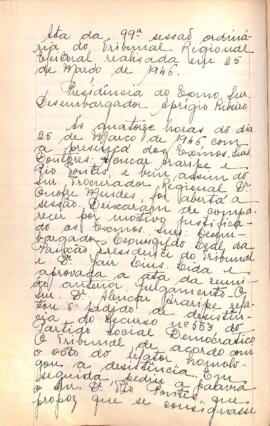 Ata da 99ª sessão ordiná-
ria do Tribunal Regional
Eleitoral realisada em 25
de Março de 1946.
Presidência do Exmo. Snr.
Desembargador Aprigio Ribeiro
As quatorze horas do dia
25 de Março de 1946, com
a presença dos Exmos. Snrs.
Doutores: Alencar Araripe e
Rio Pontes, e bem assim do
snr. Procurador Regional Dr.
Onofre Mendes, foi aberta a
sessão. Deixaram de compa-
recer por motivo justifica-
do os Exmos. Snrs. Desem-
bargador Leal da
Paixão, presidente do Tribunal
e Dr. Jair Lins. Lida e
aprovada a ata da reuni-
ão anterior. Julgamento. O
snr. Dr. Alencar Araripe rela-
tou o pedido de desistên-
cia do recurso nº 553 do
Partido Social Democrático
O Tribunal de acordo com
o voto do relator homolo-
gou a desistência. Em
seguida pediu a palavra
o snr. Dr. Rio Pontes, que
propoz que se consignasse